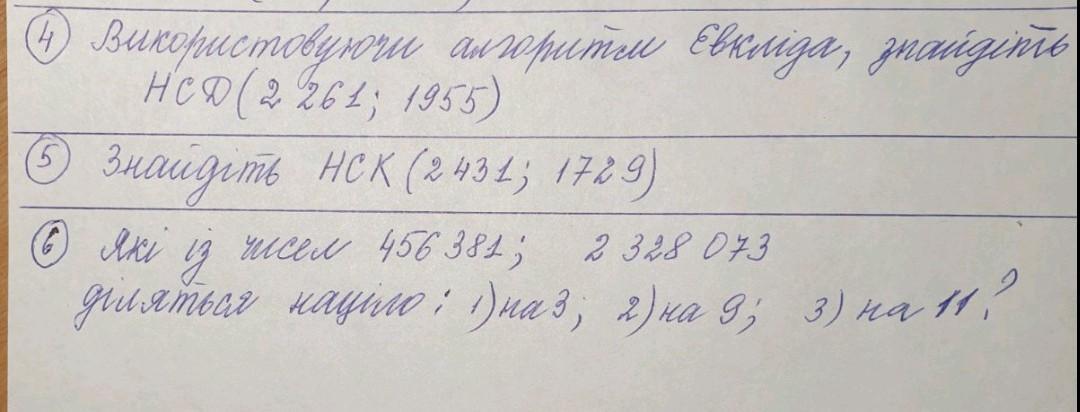 ④ Використовуючи алгоритм Євкліда, знайдіть
НСД(2 261; 1955)
⑤ Знайдіть НСК(2 431; 1729)
⑥ Які із чисел 456 381; 2 328 073
діляться націло: 1) на 3; 2) на 9; 3) на 11?